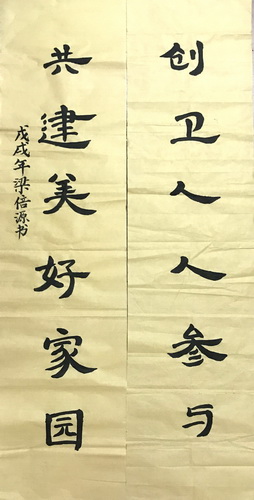 创卫人人参与
共建美好家园
戊戌年梁倍源书